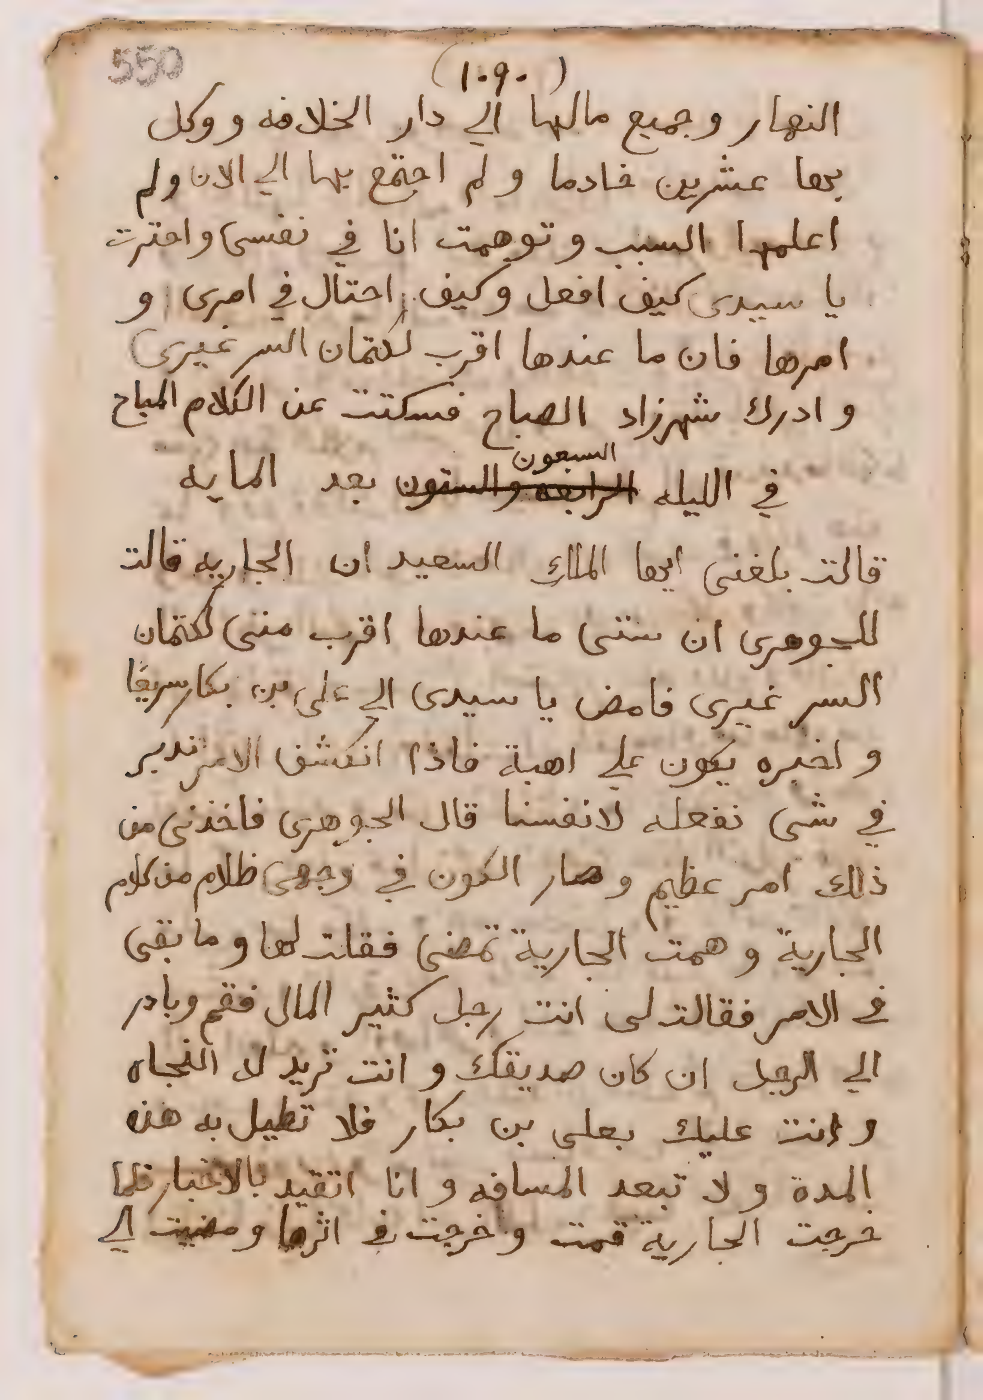 550
(١٠٩٠)
النهار وجميع مالها الي دار الخلافه ووكل
بها عشرين خادما ولم اجتمع بها الي الان ولم
اعلمها السبب وتوهمت انا في نفسى واحترت
يا سيدى كيف افعل وكيف احتال في امرى و
امرها فان ما عندها اقرب لكتمان السر غيرى
وادرك شهرزاد الصباح فسكتت عن الكلام المباح
السبعون
في الليله الرابعه والستون بعد المايه
قالت بلغنى ايها الملك السعيد ان الجاريه قالت
للجوهرى ان ستى ما عندها اقرب منى لكتمان
السر غيرى فامض يا سيدى الي على بن بكار سريعًا
واخبره يكون علي اهبة فاذا انكشف الامر تدبر
في شى نفعله لانفسنا قال الجوهرى فاخذنى من
ذلك امر عظيم وصار الكون في وجهى ظلام من كلام
الجارية وهمت الجارية تمضى فقلت لها وما بقى
في الامر فقالت لى انت رجل كثير المال فقم وبادر
الي الرجل ان كان صديقك وانت تريد له النجاه
وانت عليك بعلى بن بكار فلا تطيل به هذه
المدة ولا تبعد المسافه وانا اتقيد بالاخبار فلما
خرجت الجارية قمت وخرجت في اثرها ومضيت الي